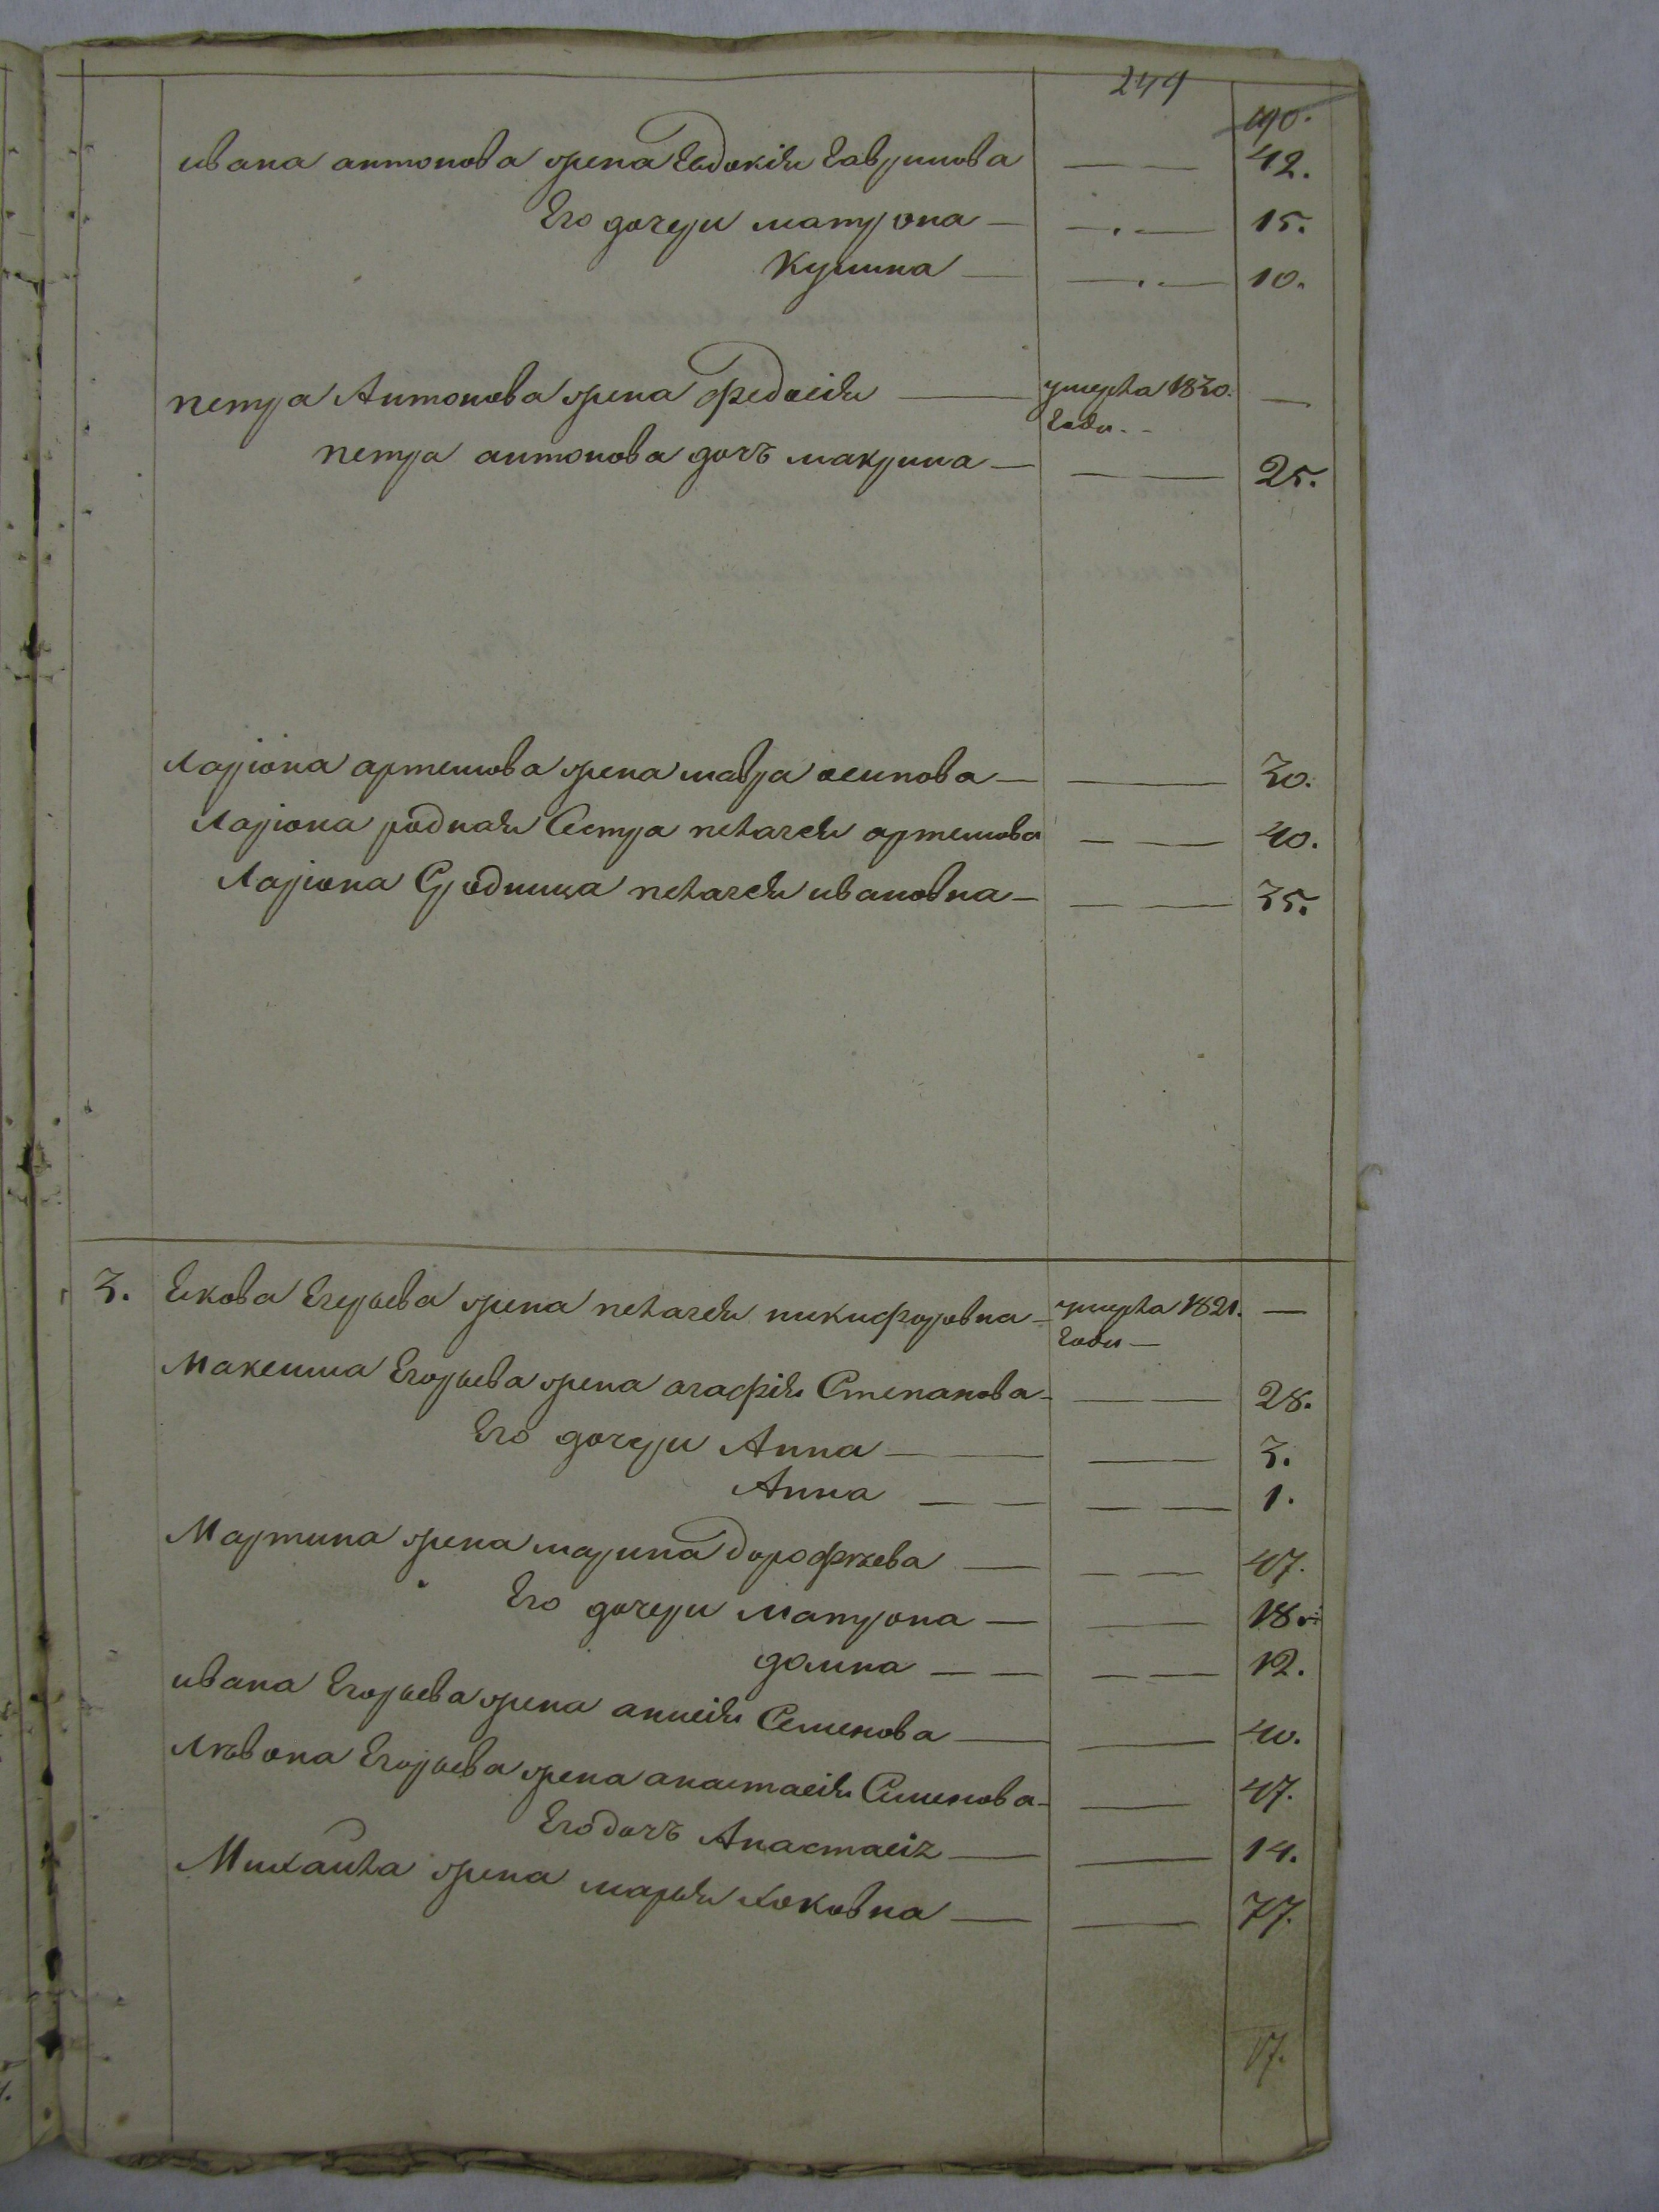 244
190.
ивана антонова жена Евдокия Гаврилова — — 42.
Его дочери матрона — — 15.
Кулина — — 10.
петра Антонова жена Федосия — умерла 1830. —
Года. -
петра антонова дочъ макрина — — 25.
Лариона артемова жена мавра осипова — — 30.
Лариона родная Сестра пелагея артемова — — 40.
Лариона Сродница пелагея ивановна — — 35.
3. Якова Егорьева жена пелагея никифоровна — умерла 1821. —
Года —
Максима Егорьева жена агафия Степанова — — 28.
Его дочери Анна — — 3.
Анна — — 1.
Мартина жена марина дорофѣева — — 47.
Его дочери Матрона — — 18.
домна — — 12.
ивана Егорьева жена анисия Семенова — — 40.
Лѣвона Егорьева жена анастасия Семенова — — 47.
Его дочъ Анастасия — — 14.
Михаила жена марья — 77.
17.